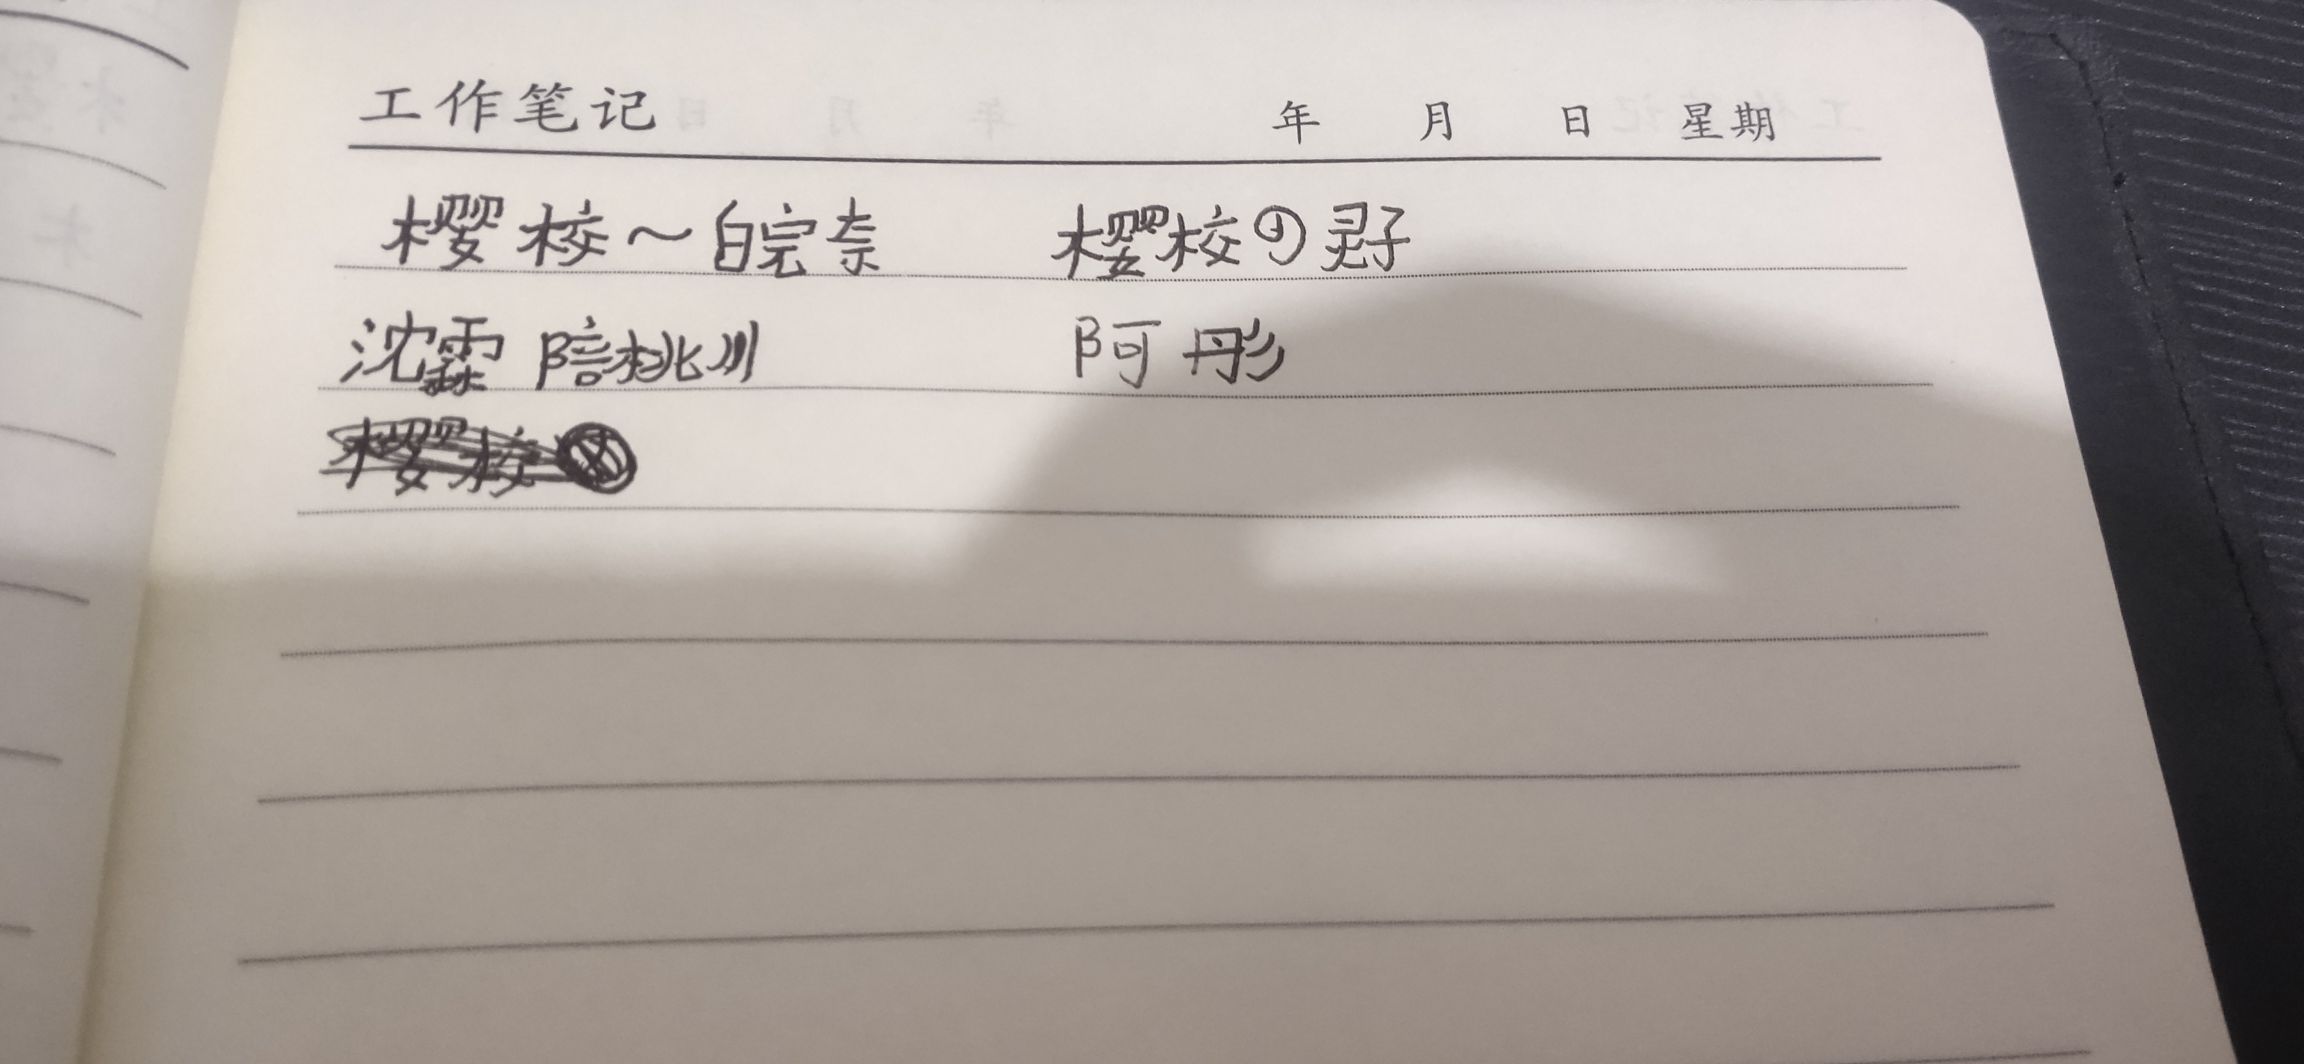 工作笔记 年 月 日 星期
樱校～皖奈 樱校の灵子
沈霖 陪桃川 阿彤
樱校